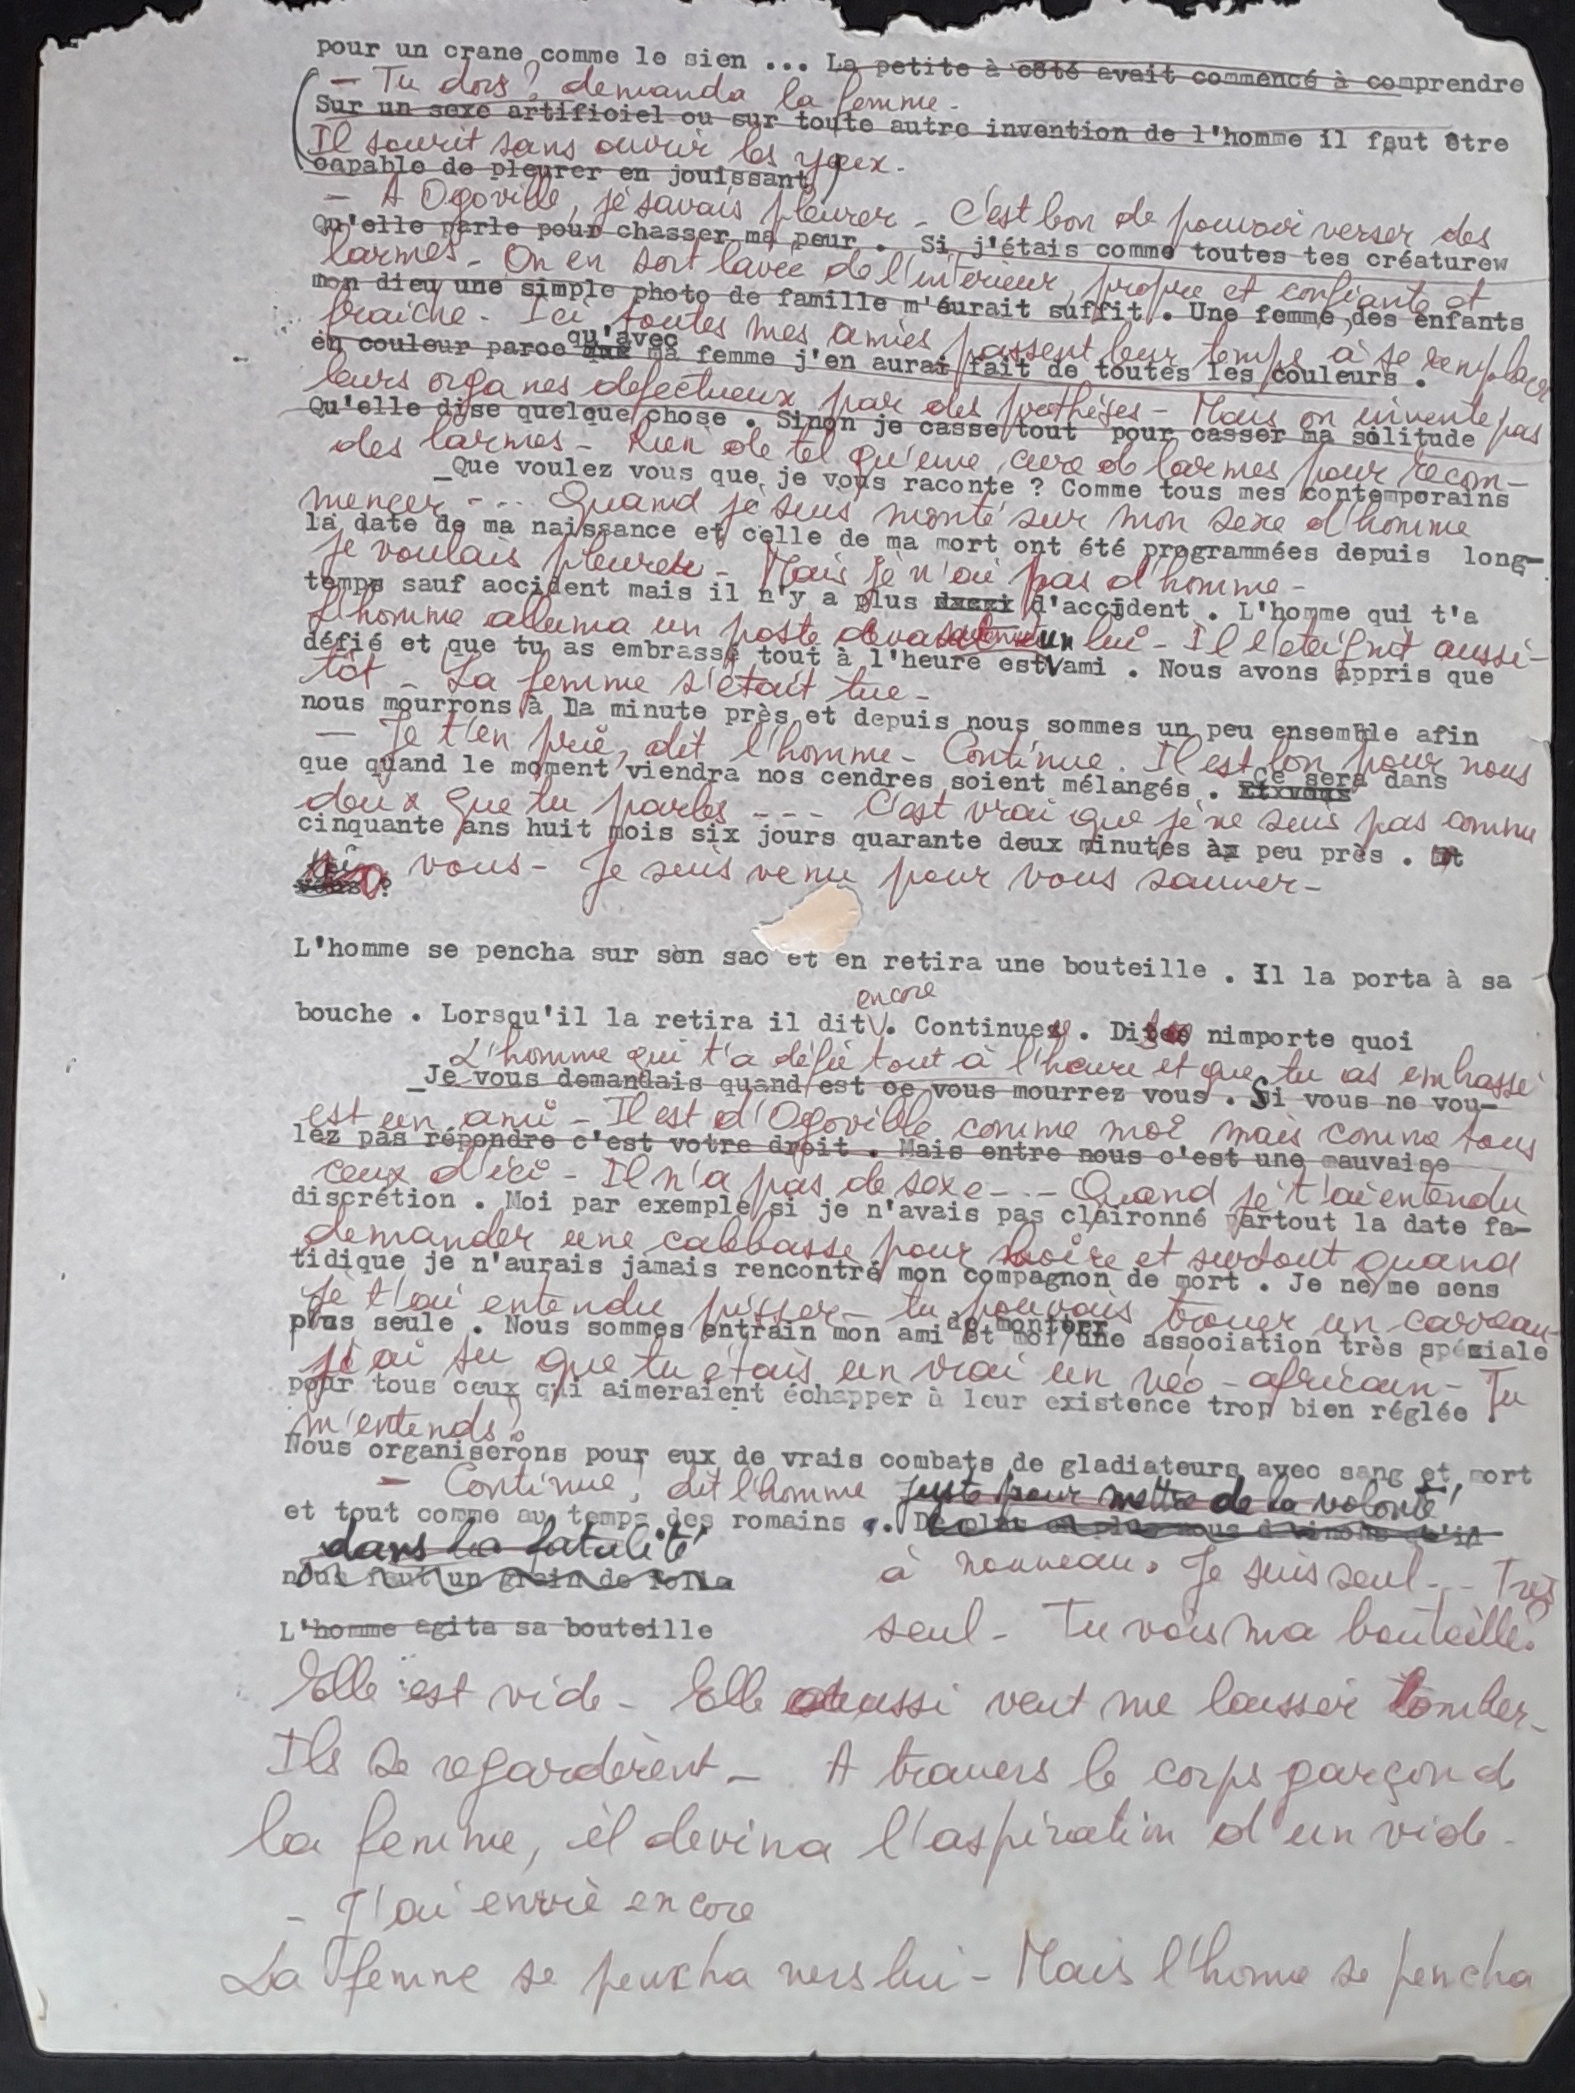 pour un crane comme le sien ... La petite à côté avait commencé à comprendre
— Tu dors ? demanda la femme -
Sur un sexe artificiel ou sur toute autre invention de l'homme il faut être
Il sourit sans ouvrir les yeux.
capable de pleurer en jouissant)
- A Ogoville, je savais pleurer - C'est bon de pouvoir verser des
Qu'elle parle pour chasser ma peur . Si j'étais comme toutes tes créaturew
larmes - On en sort lavée de l'intérieur, propre et confiante et
mon dieu une simple photo de famille m'aurait suffit . Une femme des enfants
fraîche - Ici toutes mes amies passent leur temps à se remplacer
qu'avec
en couleur parce que ma femme j'en aurai fait de toutes les couleurs .
leurs organes défectueux par des prothèses - Mais on invente pas
Qu'elle dise quelque chose . Sinon je casse tout pour casser ma solitude
des larmes - Rien de tel qu'une cure de larmes pour recom-
_Que voulez vous que je vous raconte ? Comme tous mes contemporains
mencer - ... Quand je suis monté sur mon sexe d'homme
la date de ma naissance et celle de ma mort ont été programmées depuis long-
je voulais pleurer - Mais je n'ai pas d'homme -
temps sauf accident mais il n'y a plus d'accident . L'homme qui t'a
L'homme alluma un poste devant lui - Il l'éteignit aussi-
défié et que tu as embrassé tout à l'heure est un ami . Nous avons appris que
tôt - La femme s'était tue -
nous mourrons à la minute près et depuis nous sommes un peu ensemble afin
— Je t'en prie, dit l'homme - Continue. Il est bon pour nous
que quand le moment viendra nos cendres soient mélangés . Ce sera dans
deux que tu parles - - - C'est vrai que je ne suis pas comme
cinquante ans huit mois six jours quarante deux minutes à peu près . Et
vous - Je suis venu pour vous sauver -
vous ?
L'homme se pencha sur son sac et en retira une bouteille . Il la porta à sa
encore
bouche . Lorsqu'il la retira il dit . Continue . Dis nimporte quoi
L'homme qui t'a défié tout à l'heure et que tu as embrassé
_Je vous demandais quand est ce vous mourrez vous . Si vous ne vou-
est un ami - Il est d'Ogoville comme moi mais comme tous
lez pas répondre c'est votre droit . Mais entre nous c'est une mauvaise
ceux d'ici - Il n'a pas de sexe - .. - Quand je t'ai entendu
discrétion . Moi par exemple si je n'avais pas claironné partout la date fa-
demander une calebasse pour boire et surtout quand
tidique je n'aurais jamais rencontré mon compagnon de mort . Je ne me sens
je t'ai entendu pisser - tu pouvais trouer un carreau -
de monter
plus seule . Nous sommes entrain mon ami et moi une association très spéciale
j'ai su que tu étais un vrai un néo-africain - Tu
pour tous ceux qui aimeraient échapper à leur existence trop bien réglée .
m'entends ?
Nous organiserons pour eux de vrais combats de gladiateurs avec sang et mort
- Continue, dit l'homme juste pour mettre de la volonté
et tout comme au temps des romains .
dans la fatalité
nous faut un grain de folie
à nouveau. Je suis seul - - Très
L'homme agita sa bouteille
seul - Tu vois ma bouteille.
Elle est vide - Elle aussi veut me laisser tomber -
Ils se regardèrent - A travers le corps garçon de
la femme, il devina l'aspiration d'un vide -
- J'ai envie encore
La femme se pencha vers lui - Mais l'homme se pencha